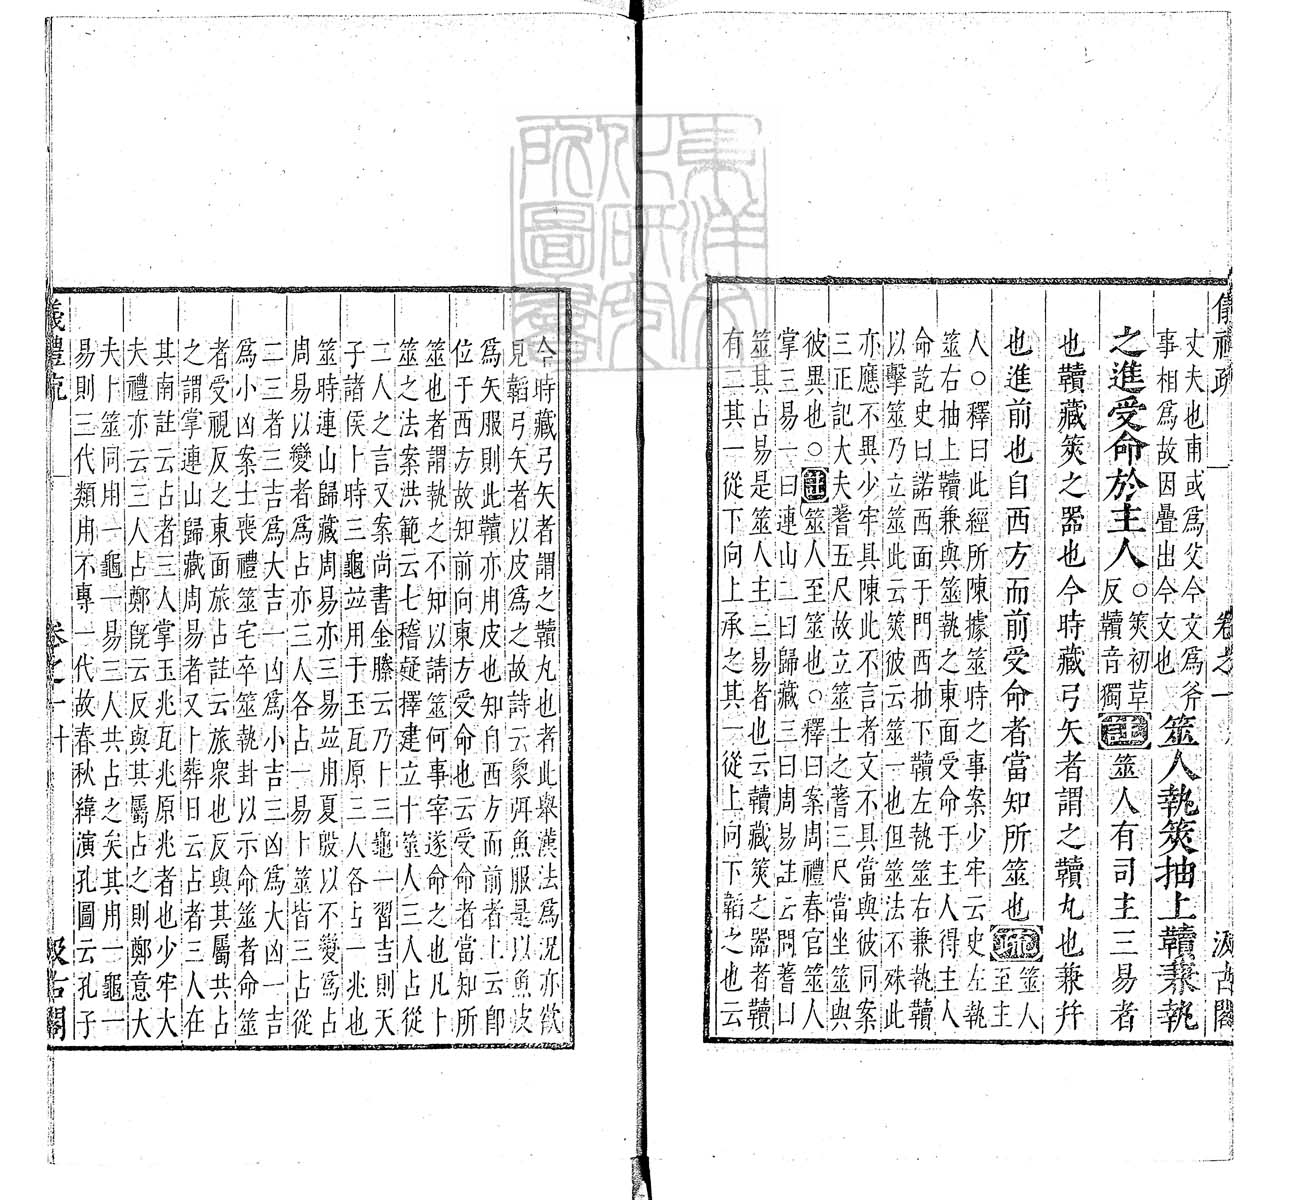 儀禮疏 卷之一 汲古閣
丈夫也甫或爲父今文爲斧
事相爲故因疊出今文也
筮人執筴抽上韇兼執
之進受命於主人
○筴初革
反韇音獨
註筮人有司主三易者
也韇藏筴之器也今時藏弓矢者謂之韇丸也兼幷
也進前也自西方而前受命者當知所筮也疏
筮人
至主
人○釋曰此經所陳據筮時之事案少牢云史左執
筮右抽上韇兼與筮執之東面受命于主人得主人
命訖史曰諾西面于門西抽下韇左執筮右兼執韇
以擊筮乃立筮此云筴彼云筮一也但筮法不殊此
亦應不異少牢具陳此不言者文不具當與彼同案
三正記大夫蓍五尺故立筮士之蓍三尺當坐筮與
彼異也○註筮人至筮也○釋曰案周禮春官筮人
掌三易一曰連山二曰歸藏三曰周易註云問蓍曰
筮其占易是筮人主三易者也云韇藏筴之器者韇
有二其一從下向上承之其一從上向下韜之也云
今時藏弓矢者謂之韇丸也者此舉漢法爲況亦欲
見韜弓矢者以皮爲之故詩云象弭魚服是以魚皮
爲矢服則此韇亦用皮也知自西方而前者上云卽
位于西方故知前向東方受命也云受命者當知所
筮也者謂執之不知以請筮何事宰遂命之也凡卜
筮之法案洪範云七稽疑擇建立卜筮人三人占從
二人之言又案尚書金縢云乃卜三龜一習吉則天
子諸侯卜時三龜竝用于玉瓦原三人各占一兆也
筮時連山歸藏周易亦三易竝用夏殷以不變爲占
周易以變者爲占亦三人各占一易卜筮皆三占從
二三者三吉爲大吉一凶爲小吉三凶爲大凶一吉
爲小凶案士喪禮筮宅卒筮執卦以示命筮者命筮
者受視反之東面旅占註云旅衆也反與其屬共占
之謂掌連山歸藏周易者又卜葬日云占者三人在
其南註云占者三人掌玉兆瓦兆原兆者也少牢大
夫禮亦云三人占鄭旣云反與其屬占之則鄭意大
夫卜筮同用一龜一易三人共占之矣其用一龜一
易則三代類用不專一代故春秋緯演孔圖云孔子
儀禮疏 卷之一 十 汲古閣
東洋文化研究所圖書